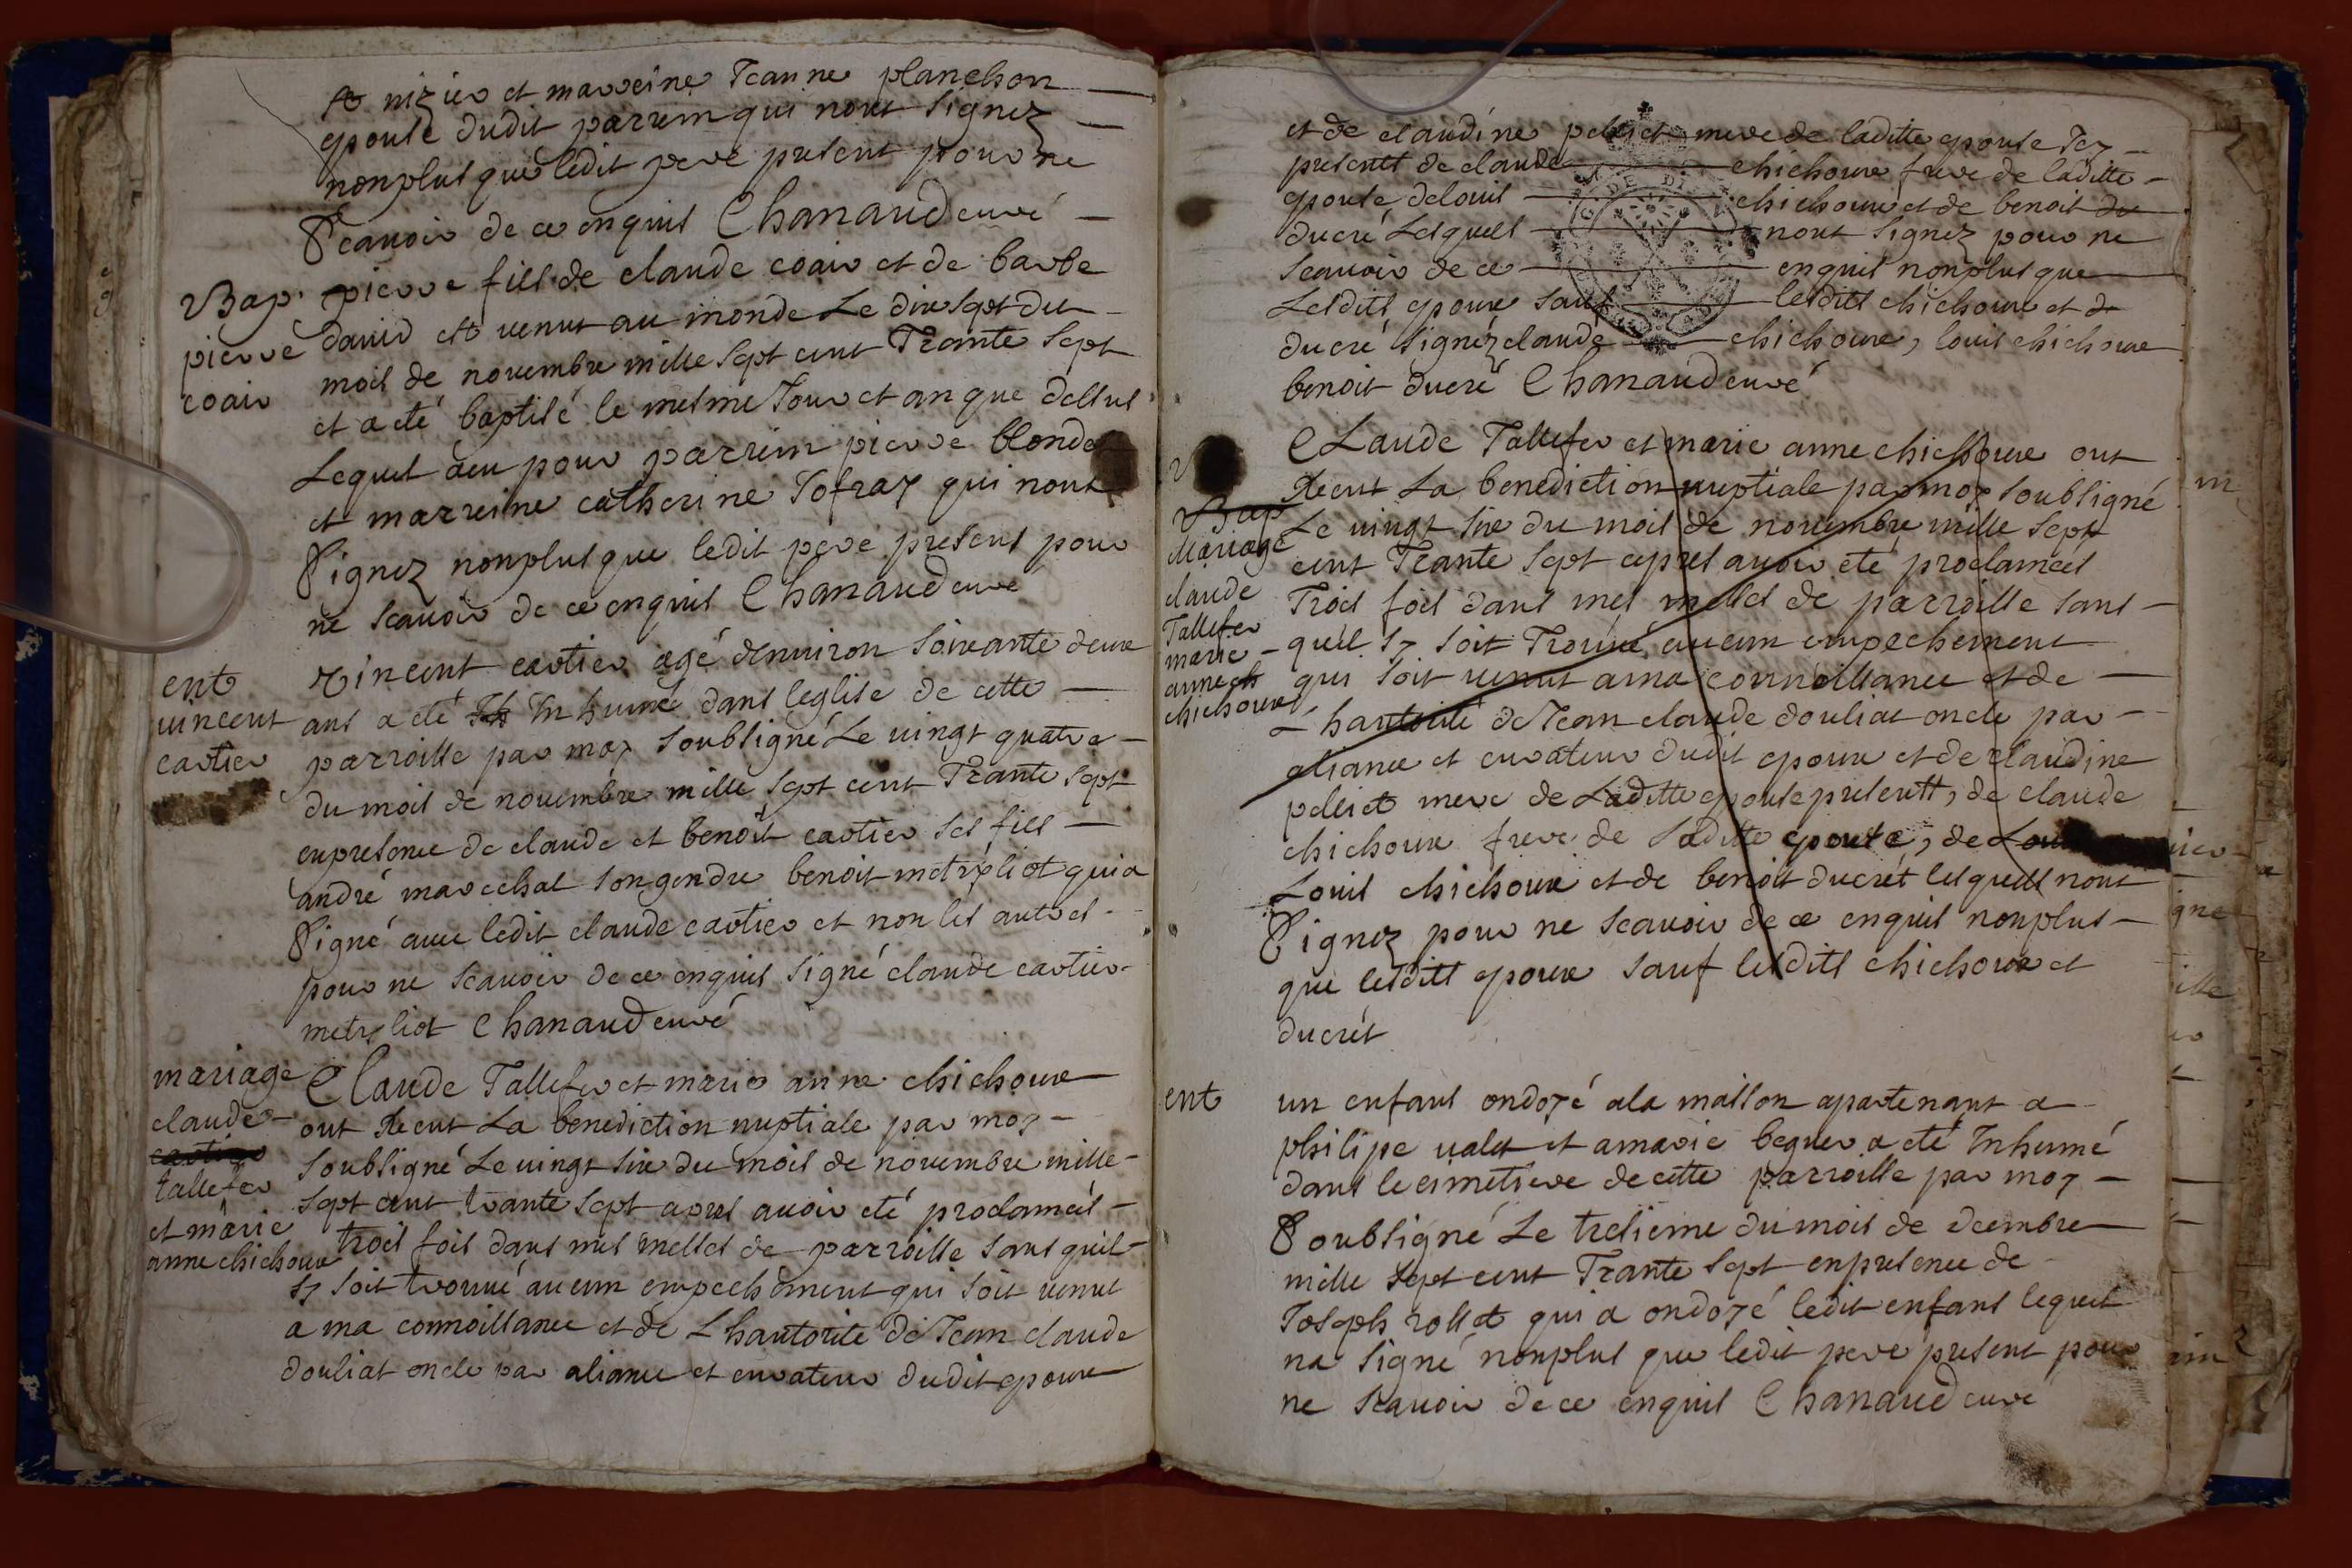 st nizier et marreine Jeanne planchon
epouse dudit parrein qui nont signez
nonplus que ledit pere present pour ne
scauoir de ce enquis Chanaud curé
Bap. pierre coair
pierre fils de claude coair et de barbe
dauid est venut au monde Le dixsept du
mois de nouembre mille sept cent Trante sept
et a eté baptisé le mesme Jour et an que dessus
Lequel aeu pour parrein pierre blondet
et marreine catherine Jofray qui nont
signez nonplus que ledit pere present pour
ne scauoir de ce enquis Chanaud cure
ent vincent cartier
vincent cartier agé denuiron soixante deux
ans a eté Inhumé dans leglise de cette
parroisse par moy soubsigné Le uingt quatre
du mois de nouembre mille sept cent Trante sept
enpresence de claude et benoit cartier ses fils
andré marechal songendre benoit metrpliot qui a
signé auec ledit claude cartier et non les autres
pour ne scauoir de ce enquis signé claude cartier
metrpliot Chanaud curé
mariage
claude
cartier
tallefer
et marie
anne chichoux
Claude Tallefer et marie anne chichoux
ont Receut La benediction nuptiale par moy
soubsigné Le uingt six du mois de nouembre mille
sept cent trante sept apres auoir eté proclamés
trois fois dans mes messes de parroisse sans quil
sy soit trouué aucun empechement qui soit venut
a ma connoissance et de Lhautorité de Jean claude
douliat oncle par aliance et curateur dudit epoux
et de claudine pelliet mere de laditte epouse Icy
presents de claude chichoux frere de laditte
epouse delouis chichoux et de benoit du
ducré Lesquels nont signez pour ne
scauoir de ce enquis nonplus que
Lesdits epoux sauf lesdits chichoux et d
ducré signéz claude chichoux, louis chichoux
benoit ducré Chanaud curé
Bap
Mariage
claude
Tallefer
marie
anne ch
chichoux
Claude Tallefer et marie anne chichoux ont
Receut La benediction nuptiale par moy soubsigné
Le uingt six du mois de nouembre mille sept
cent Trante sept apres auoir eté proclamés
Trois fois dans mes messes de parroisse sans
quil sy soit Trouué aucun empechement
qui soit uenut ama connoissance et de
Lhautorité de Jean claude douliat oncle par
aliance et curateur dudit epoux et de claudine
pelliet mere de Laditte epouse presentt, de claude
chichoux frere de laditte epouse, de Loui
Louis chichoux et de benoit ducrét lesquels nont
signez pour ne scauoir de ce enquis nonplus
que lesditt epoux sauf lesdits chichoux et
ducrét
ent
un enfans ondoyé ala maison apartenant a
philipe ualet et amarie beguer a eté Inhumé
dans le cimetiere decette parroisse par moy
soubsigné Le tresieme du mois de decembre
mille sept cent Trante sept enpresence de
Joseph rollet qui a ondoyé ledit enfans lequel
na signé nonplus que ledit pere present pour
ne scauoir de ce enquis Chanaud curé